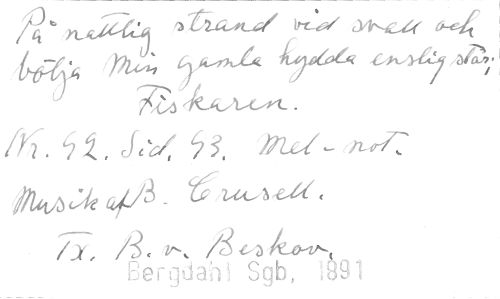 På nattlig strand vid svall och
bölja Min gamla hydda enslig står;
Fiskaren.
Nr. 92. Sid. 93. Mel-not.
Musik af B. Crusell.
Tx. B. v. Beskov.
Bergdahl Sgb, 1891